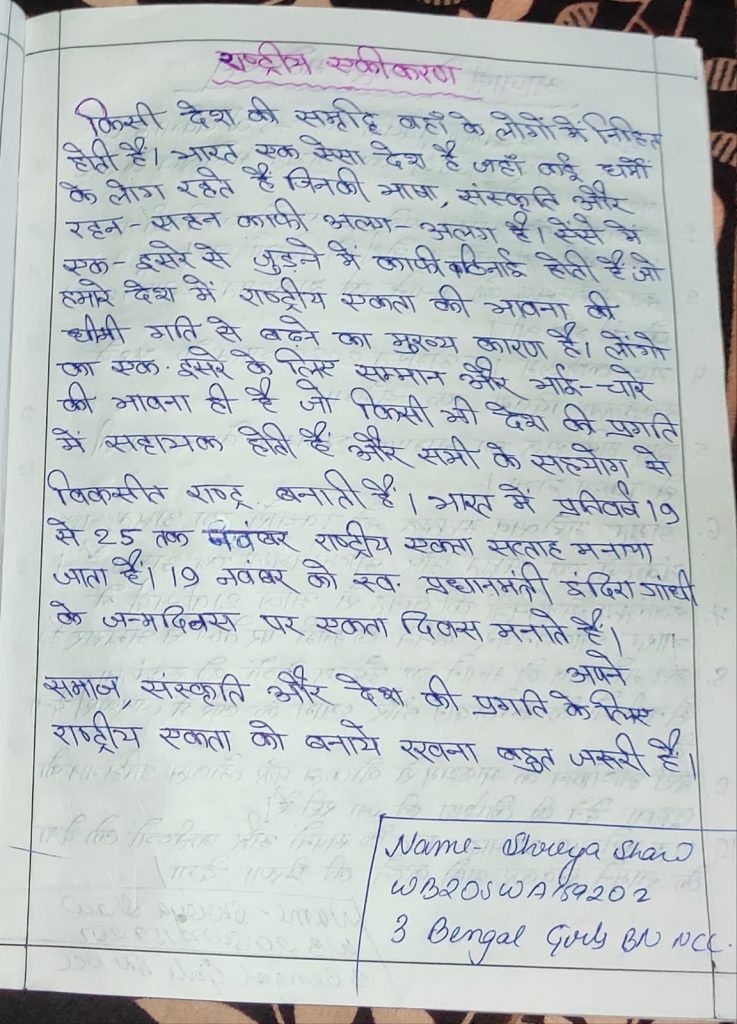 राष्ट्रीय एकीकरण
किसी देश की समृद्धि वहाँ के लोगों में निहित
होती है। भारत एक ऐसा देश है जहाँ कई धर्मों
के लोग रहते हैं जिनकी भाषा, संस्कृति और
रहन-सहन काफी अलग-अलग है। ऐसे में
एक-दूसरे से जुड़ने में काफी कठिनाई होती है जो
हमारे देश में राष्ट्रीय एकता की भावना की
धीमी गति से बढ़ने का मुख्य कारण है। लोगो
का एक-दूसरे के लिए सम्मान और भाई-चारे
की भावना ही है जो किसी भी देश की प्रगति
में सहायक होती है और सभी के सहयोग से
विकसीत राष्ट्र बनाती है। भारत में प्रतिवर्ष 19
से 25 तक नवंबर राष्ट्रीय एकता सप्ताह मनाया
जाता है। 19 नवंबर को स्व. प्रधानमंत्री इंदिरा गांधी
के जन्मदिवस पर एकता दिवस मनाते हैं।
अपने
समाज संस्कृति और देश की प्रगति के लिए
राष्ट्रीय एकता को बनाये रखना बहुत जरुरी है।
Name- Shreya Shaw
WB20SWA159202
3 Bengal Girls BN NCC.